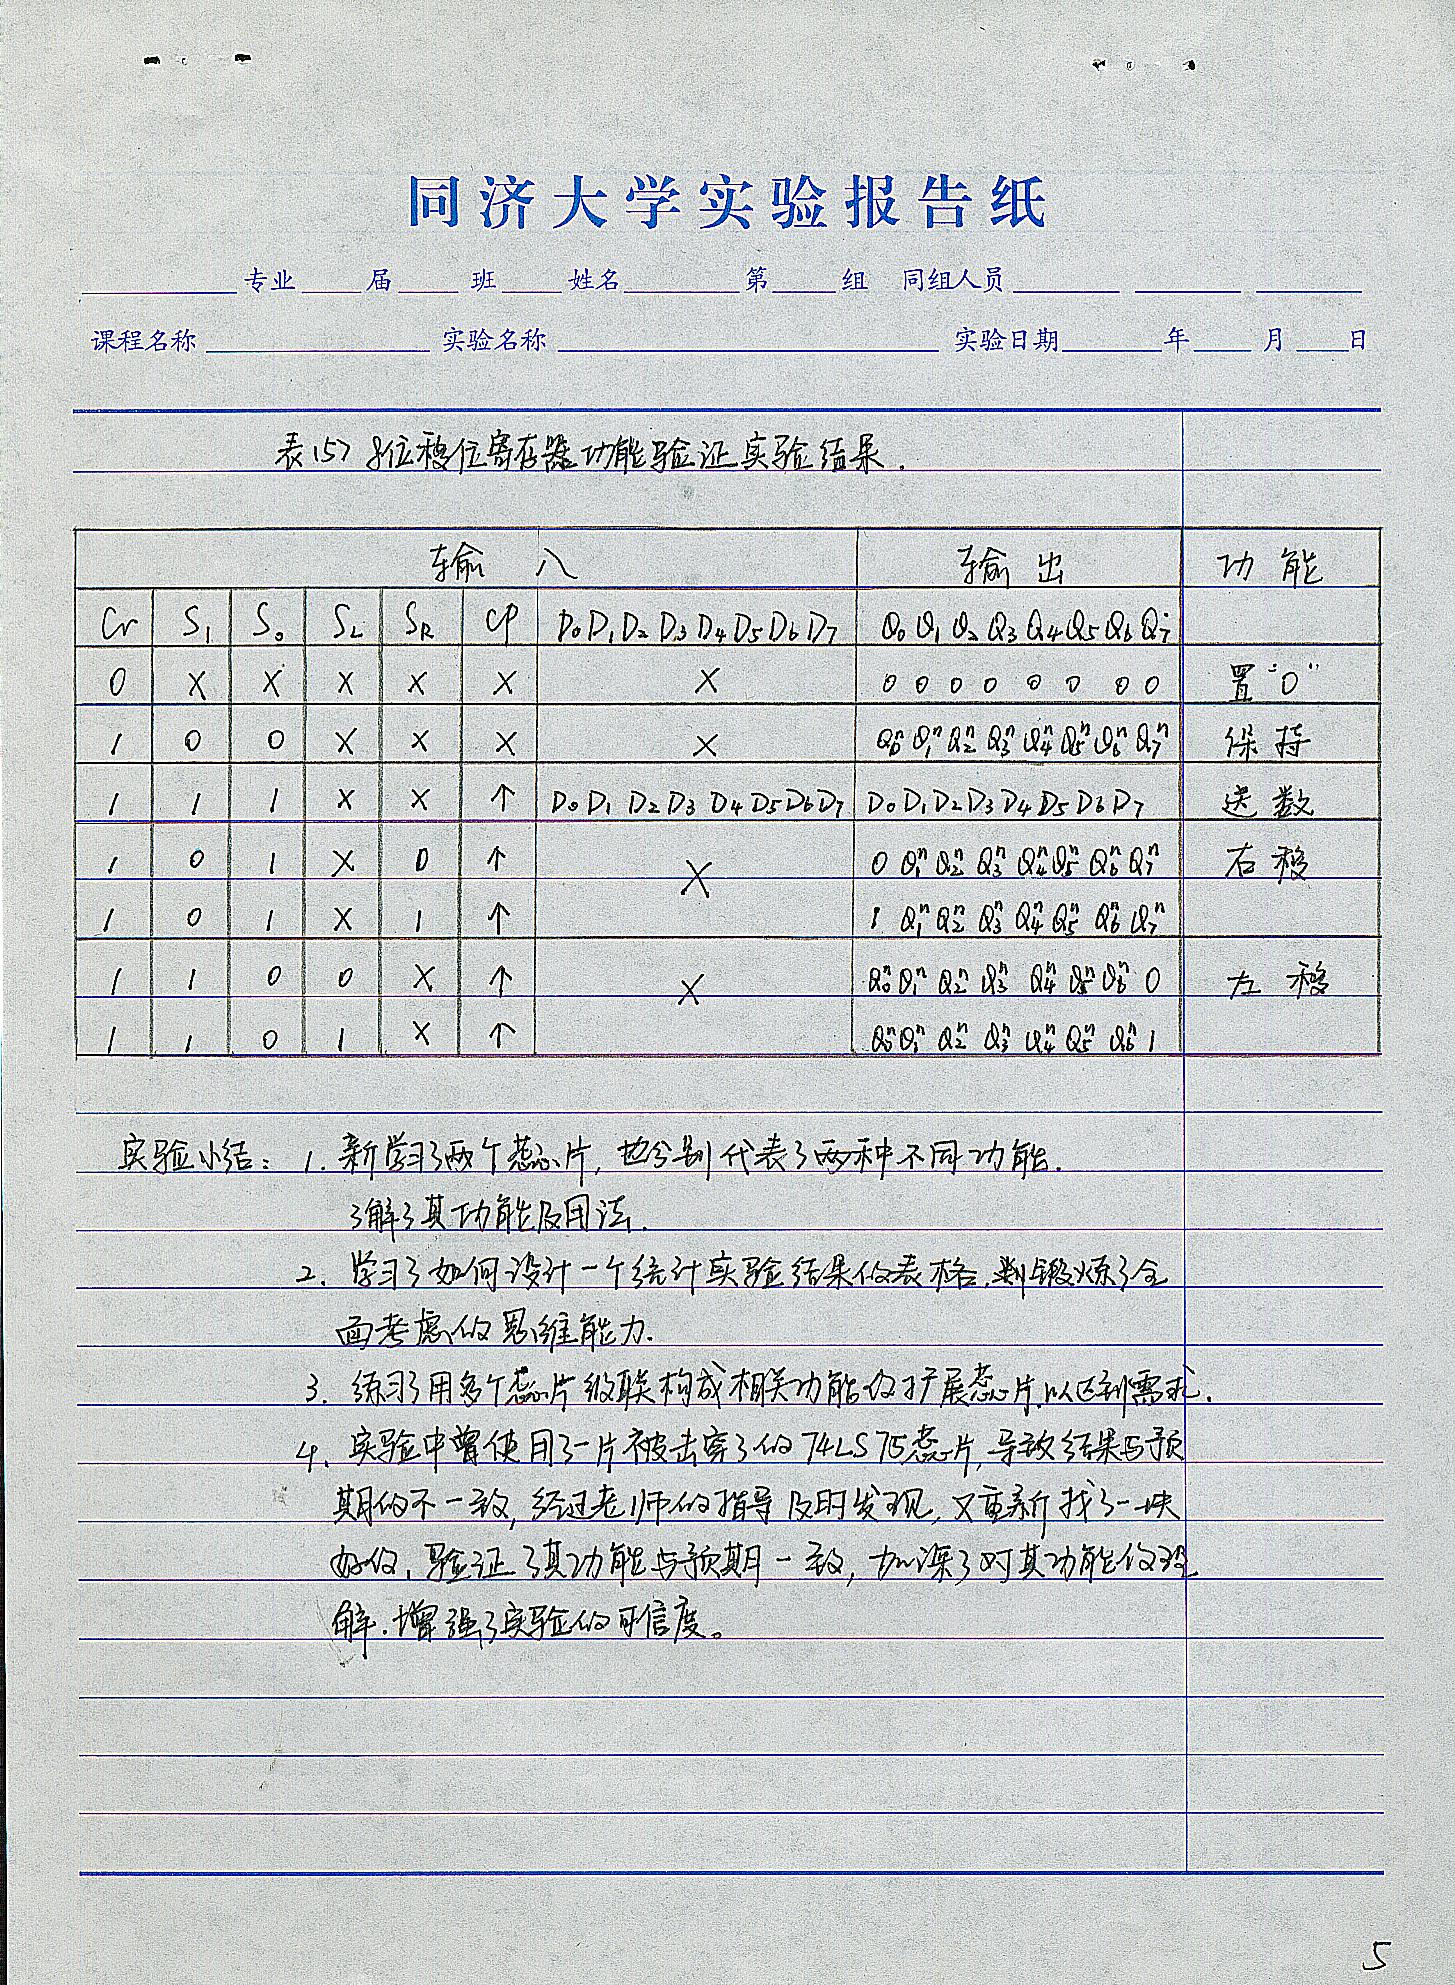 同济大学实验报告纸
专业 届 班 姓名 第 组 同组人员
课程名称 实验名称 实验日期 年 月 日
表(5) 8位移位寄存器功能验证实验结果.
输 入 输 出 功 能
Cr S₁ S₀ S_L S_R CP D₀D₁D₂D₃D₄D₅D₆D₇ Q₀Q₁Q₂Q₃Q₄Q₅Q₆Q₇
0 × × × × × × 0 0 0 0 0 0 0 0 置“0”
1 0 0 × × × × Q₀ⁿQ₁ⁿQ₂ⁿQ₃ⁿQ₄ⁿQ₅ⁿQ₆ⁿQ₇ⁿ 保持
1 1 1 × × ↑ D₀D₁D₂D₃D₄D₅D₆D₇ D₀D₁D₂D₃D₄D₅D₆D₇ 送数
1 0 1 × 0 ↑ × 0 Q₁ⁿQ₂ⁿQ₃ⁿQ₄ⁿQ₅ⁿQ₆ⁿQ₇ⁿ 右移
1 0 1 × 1 ↑ 1 Q₁ⁿQ₂ⁿQ₃ⁿQ₄ⁿQ₅ⁿQ₆ⁿQ₇ⁿ
1 1 0 0 × ↑ × Q₀ⁿQ₁ⁿQ₂ⁿQ₃ⁿQ₄ⁿQ₅ⁿQ₆ⁿ 0 左移
1 1 0 1 × ↑ Q₀ⁿQ₁ⁿQ₂ⁿQ₃ⁿQ₄ⁿQ₅ⁿQ₆ⁿ 1
实验小结: 1. 新学习了两个蕊片, 也分别代表了两种不同功能.
了解了其功能及用法.
2. 学习了如何设计一个统计实验结果的表格, 锻炼了全
面考虑的思维能力.
3. 练习了用多个蕊片级联构成相关功能的扩展蕊片, 以达到需求.
4. 实验中曾使用了一片被击穿了的74LS75蕊片, 导致结果与预
期的不一致, 经过老师的指导及时发现, 又重新找了一块
好的, 验证了其功能与预期一致, 加深了对其功能的理
解. 增强了实验的可信度。
5